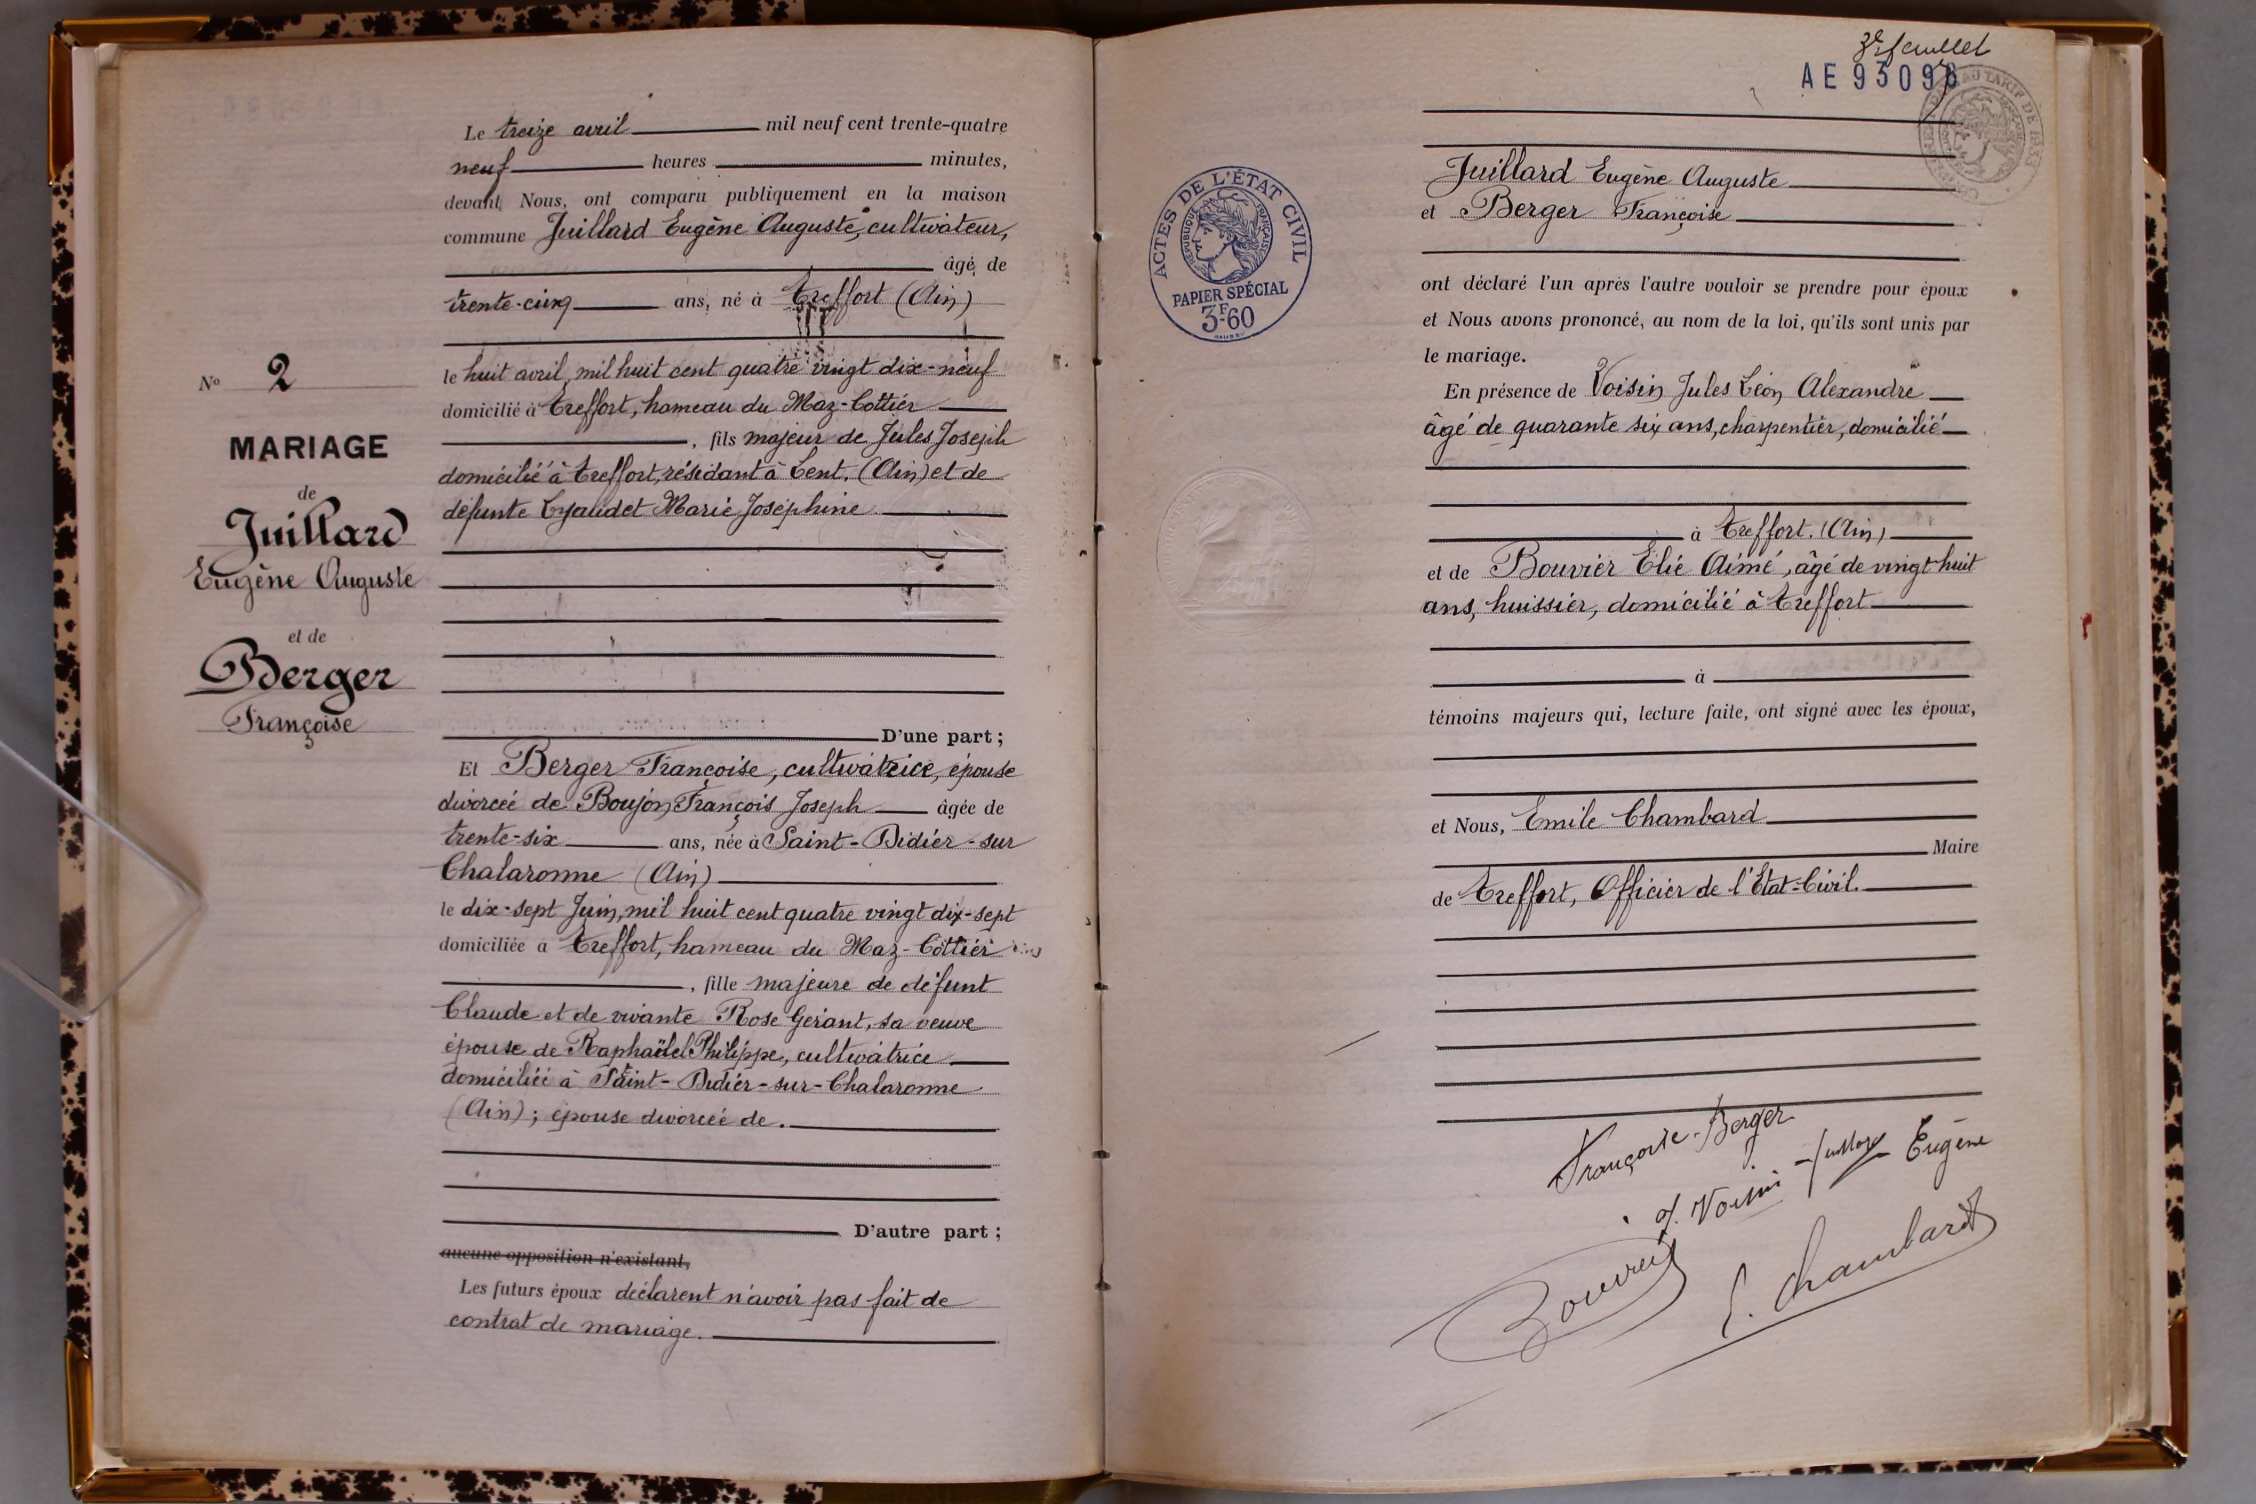 Le treize avril mil neuf cent trente-quatre
neuf heures minutes,
devant Nous, ont comparu publiquement en la maison
commune Juillard Eugène Auguste, cultivateur,
âgé de
trente-cinq ans, né à Treffort (Ain)
le huit avril, mil huit cent quatre vingt dix-neuf
domicilié à Treffort, hameau du Maz-Cottier
, fils majeur de Jules Joseph
domicilié à Treffort, résidant à Cent. (Ain) et de
défunte Cyaudet Marie Joséphine
D'une part ;
Et Berger Françoise, cultivatrice, épouse
divorcée de Boujon François Joseph âgée de
trente-six ans, née à Saint-Didier-sur
Chalaronne (Ain)
le dix-sept Juin, mil huit cent quatre vingt dix-sept
domiciliée à Treffort, hameau du Maz-Cottier
, fille majeure de défunt
Claude et de vivante Rose Gerant, sa veuve
épouse de Raphaël Philippe, cultivatrice
domiciliée à Saint-Didier-sur-Chalaronne
(Ain) ; épouse divorcée de.
D'autre part ;
aucune opposition n'existant,
Les futurs époux déclarent n'avoir pas fait de
contrat de mariage.
No 2
MARIAGE
de
Juillard
Eugène Auguste
et de
Berger
Françoise
3e feuillet
AE 93096
ACTES DE L'ÉTAT CIVIL
RÉPUBLIQUE FRANÇAISE
PAPIER SPÉCIAL
3F.60
Juillard Eugène Auguste
et Berger Françoise
ont déclaré l'un après l'autre vouloir se prendre pour époux
et Nous avons prononcé, au nom de la loi, qu'ils sont unis par
le mariage.
En présence de Voisin Jules Léon Alexandre
âgé de quarante six ans, charpentier, domicilié
à Treffort. (Ain)
et de Bouvier Elie Aimé, âgé de vingt-huit
ans, huissier, domicilié à Treffort
à
témoins majeurs qui, lecture faite, ont signé avec les époux,
et Nous, Emile Chambard
Maire
de Treffort, Officier de l'Etat-Civil.
Françoise Berger
Juillard Eugène
J. Voisin
Bouvier
E. Chambard